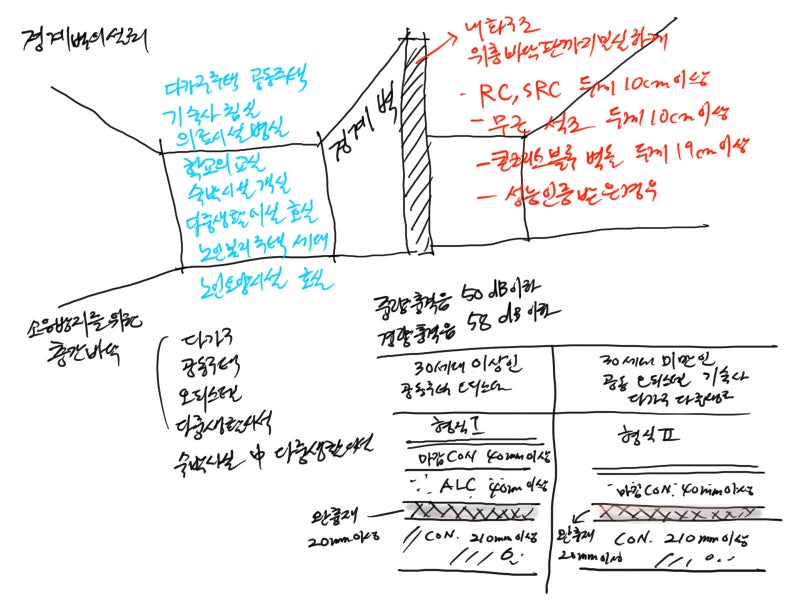 경계벽의 설치
다가구주택 공동주택
기숙사 침실
의료시설 병실
학교의 교실
숙박시설 객실
다중생활시설 호실
노인복지주택 세대
노인요양시설 호실
경계벽
내화구조
위층바닥판까지 밀실하게
- RC, SRC 두께 10cm 이상
- 무근 석조 두께 10cm 이상
- 콘크리트블록 벽돌 두께 19cm 이상
- 성능인증 받은경우
소음방지를 위한
층간바닥
다가구
공동주택
오피스텔
다중생활시설
숙박시설 中 다중생활시설
중량충격음 50 dB 이하
경량충격음 58 dB 이하
30세대 이상인
공동주택 오피스텔
형식 I
마감 CON 40mm 이상
ALC 40mm 이상
완충재
20mm 이상
CON. 210mm 이상
30세대 미만인
공동 오피스텔 기숙사
다가구 다중생활
형식 II
마감 CON. 40mm 이상
완충재
20mm 이상
CON. 210mm 이상